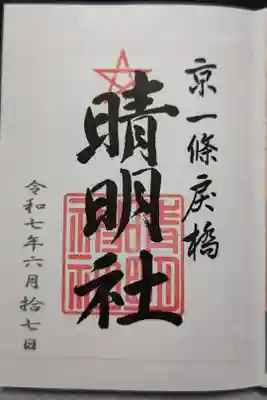 京一條戻橋
晴明社
令和七年六月拾七日